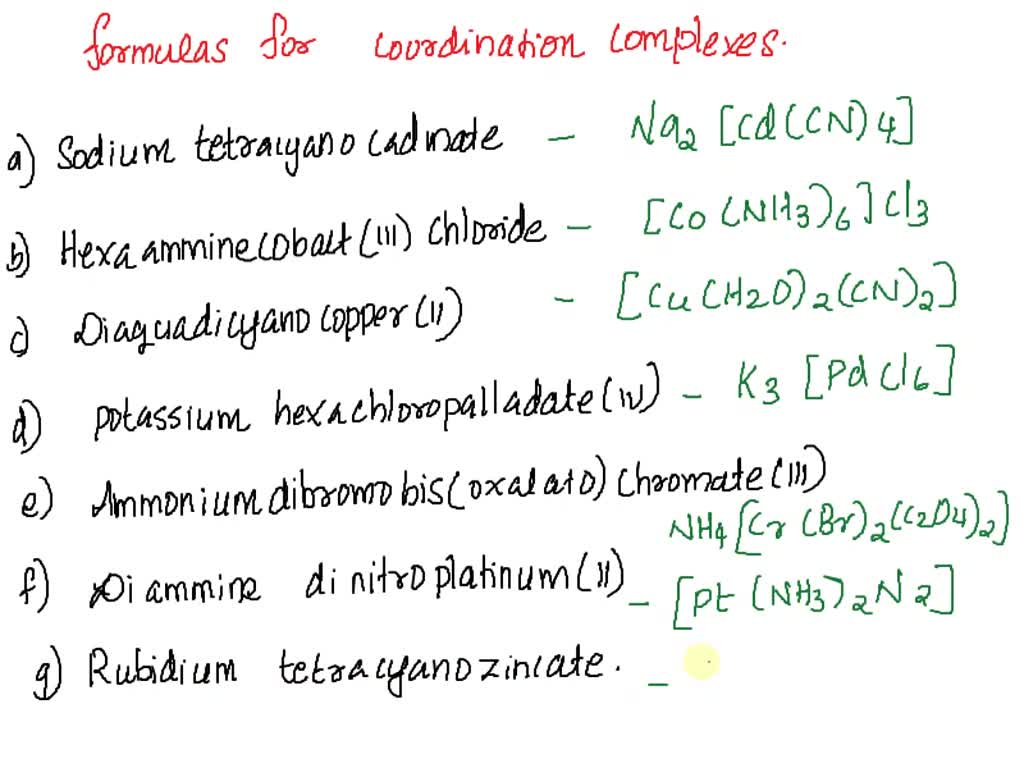 formulas for coordination complexes.
a) Sodium tetracyano cadmate - Na2 [Cd(CN)4]
b) Hexaammine cobalt (III) chloride - [Co(NH3)6]Cl3
c) Diaquadicyano copper (II) - [Cu(H2O)2(CN)2]
d) potassium hexachloropalladate (IV) - K3 [PdCl6]
e) Ammonium dibromo bis(oxalato) chromate (III)
NH4 [Cr(Br)2(C2O4)2]
f) Diammine dinitroplatinum (II) - [Pt(NH3)2N2]
g) Rubidium tetracyanozincate. -